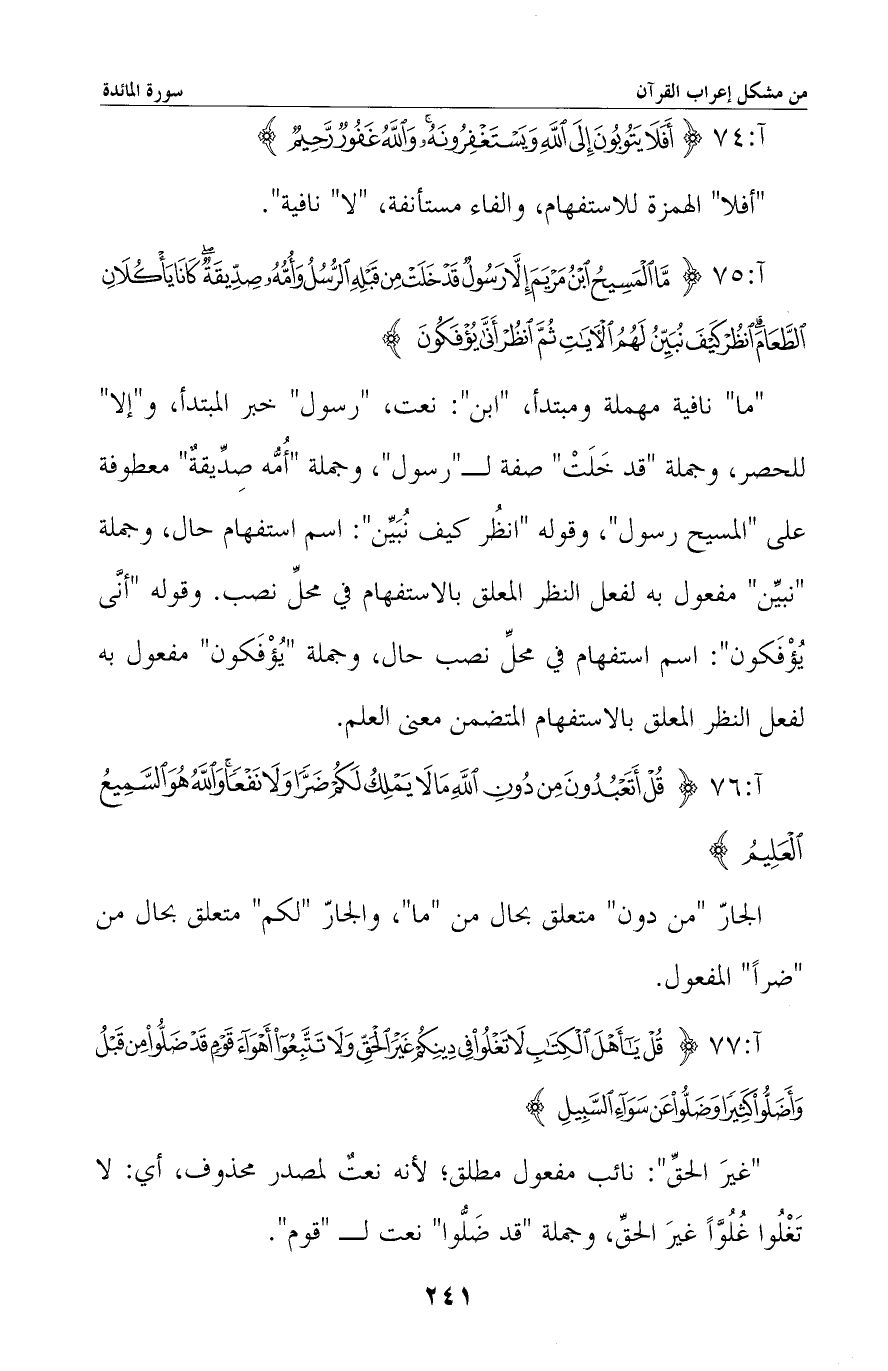 من مشكل إعراب القرآن سورة المائدة
آ:٧٤ ﴿ أَفَلَا يَتُوبُونَ إِلَى ٱللَّهِ وَيَسْتَغْفِرُونَهُۥ ۚ وَٱللَّهُ غَفُورٌ رَّحِيمٌ ﴾
"أفلا" الهمزة للاستفهام، والفاء مستأنفة، "لا" نافية".
آ:٧٥ ﴿ مَّا ٱلْمَسِيحُ ٱبْنُ مَرْيَمَ إِلَّا رَسُولٌ قَدْ خَلَتْ مِن قَبْلِهِ ٱلرُّسُلُ وَأُمُّهُۥ صِدِّيقَةٌ ۖ كَانَا يَأْكُلَانِ
ٱلطَّعَامَ ۗ ٱنظُرْ كَيْفَ نُبَيِّنُ لَهُمُ ٱلْآيَٰتِ ثُمَّ ٱنظُرْ أَنَّىٰ يُؤْفَكُونَ ﴾
"ما" نافية مهملة ومبتدأ، "ابن": نعت، "رسول" خبر المبتدأ، و"إلا"
للحصر، وجملة "قد خَلَتْ" صفة لــ"رسول"، وجملة "أُمُّه صِدِّيقةٌ" معطوفة
على "المسيح رسول"، وقوله "انظُر كيف نُبَيِّن": اسم استفهام حال، وجملة
"نبيِّن" مفعول به لفعل النظر المعلق بالاستفهام في محلِّ نصب. وقوله "أنَّى
يُؤْفَكون": اسم استفهام في محلِّ نصب حال، وجملة "يُؤْفَكون" مفعول به
لفعل النظر المعلق بالاستفهام المتضمن معنى العلم.
آ:٧٦ ﴿ قُلْ أَتَعْبُدُونَ مِن دُونِ ٱللَّهِ مَا لَا يَمْلِكُ لَكُمْ ضَرًّا وَلَا نَفْعًا ۚ وَٱللَّهُ هُوَ ٱلسَّمِيعُ
ٱلْعَلِيمُ ﴾
الجارّ "من دون" متعلق بحال من "ما"، والجارّ "لكم" متعلق بحال من
"ضراً" المفعول.
آ:٧٧ ﴿ قُلْ يَٰٓأَهْلَ ٱلْكِتَٰبِ لَا تَغْلُوا۟ فِى دِينِكُمْ غَيْرَ ٱلْحَقِّ وَلَا تَتَّبِعُوٓا۟ أَهْوَآءَ قَوْمٍ قَدْ ضَلُّوا۟ مِن قَبْلُ
وَأَضَلُّوا۟ كَثِيرًا وَضَلُّوا۟ عَن سَوَآءِ ٱلسَّبِيلِ ﴾
"غيرَ الحقِّ": نائب مفعول مطلق؛ لأنه نعتٌ لمصدر محذوف، أي: لا
تَغْلُوا غُلُوَّاً غيرَ الحقِّ، وجملة "قد ضَلُّوا" نعت لــ "قوم".
٢٤١